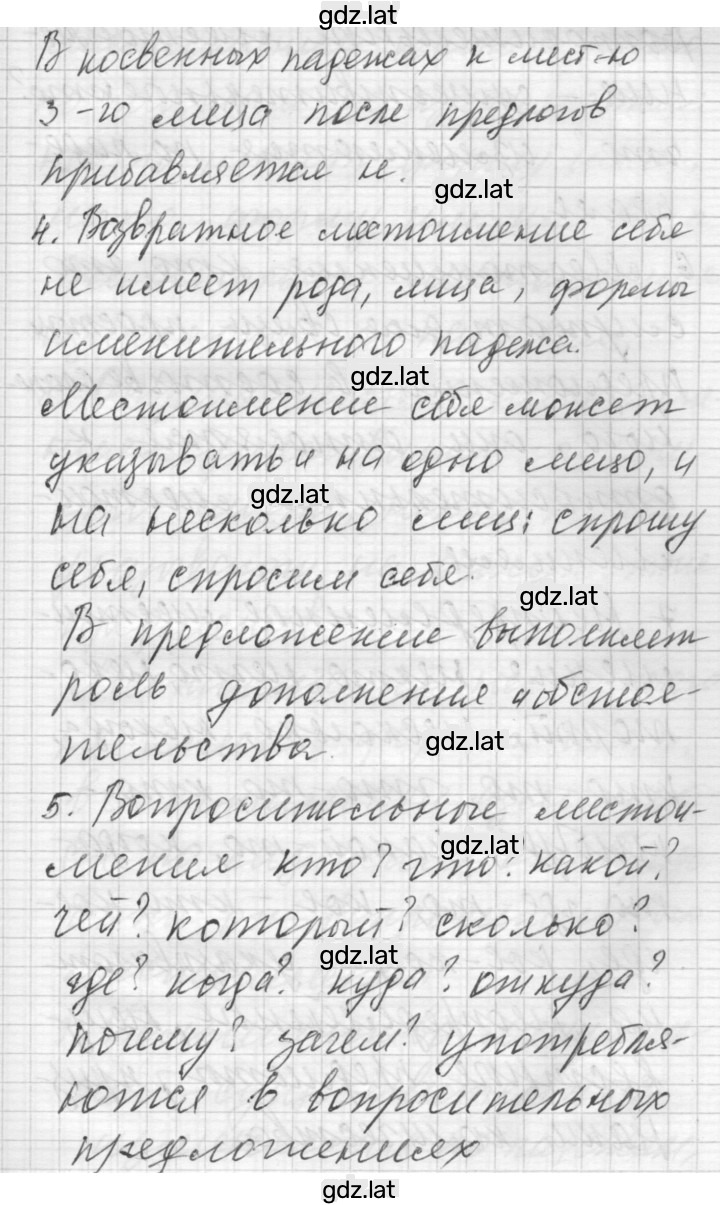 gdz.lat
В косвенных падежах к мест-ю
3-го лица после предлогов
прибавляется н.
gdz.lat
4. Возвратное местоимение себя
не имеет рода, лица, формы
именительного падежа.
gdz.lat
Местоимение себя может
указывать и на одно лицо, и
gdz.lat
на несколько лиц: спрошу
себя, спросим себя.
gdz.lat
В предложение выполняет
роль дополнения и обстоя-
тельства.
gdz.lat
5. Вопросительные местои-
gdz.lat
мения кто? что? какой?
чей? который? сколько?
gdz.lat
где? когда? куда? откуда?
почему? зачем? употребля-
ются в вопросительных
предложениях
gdz.lat